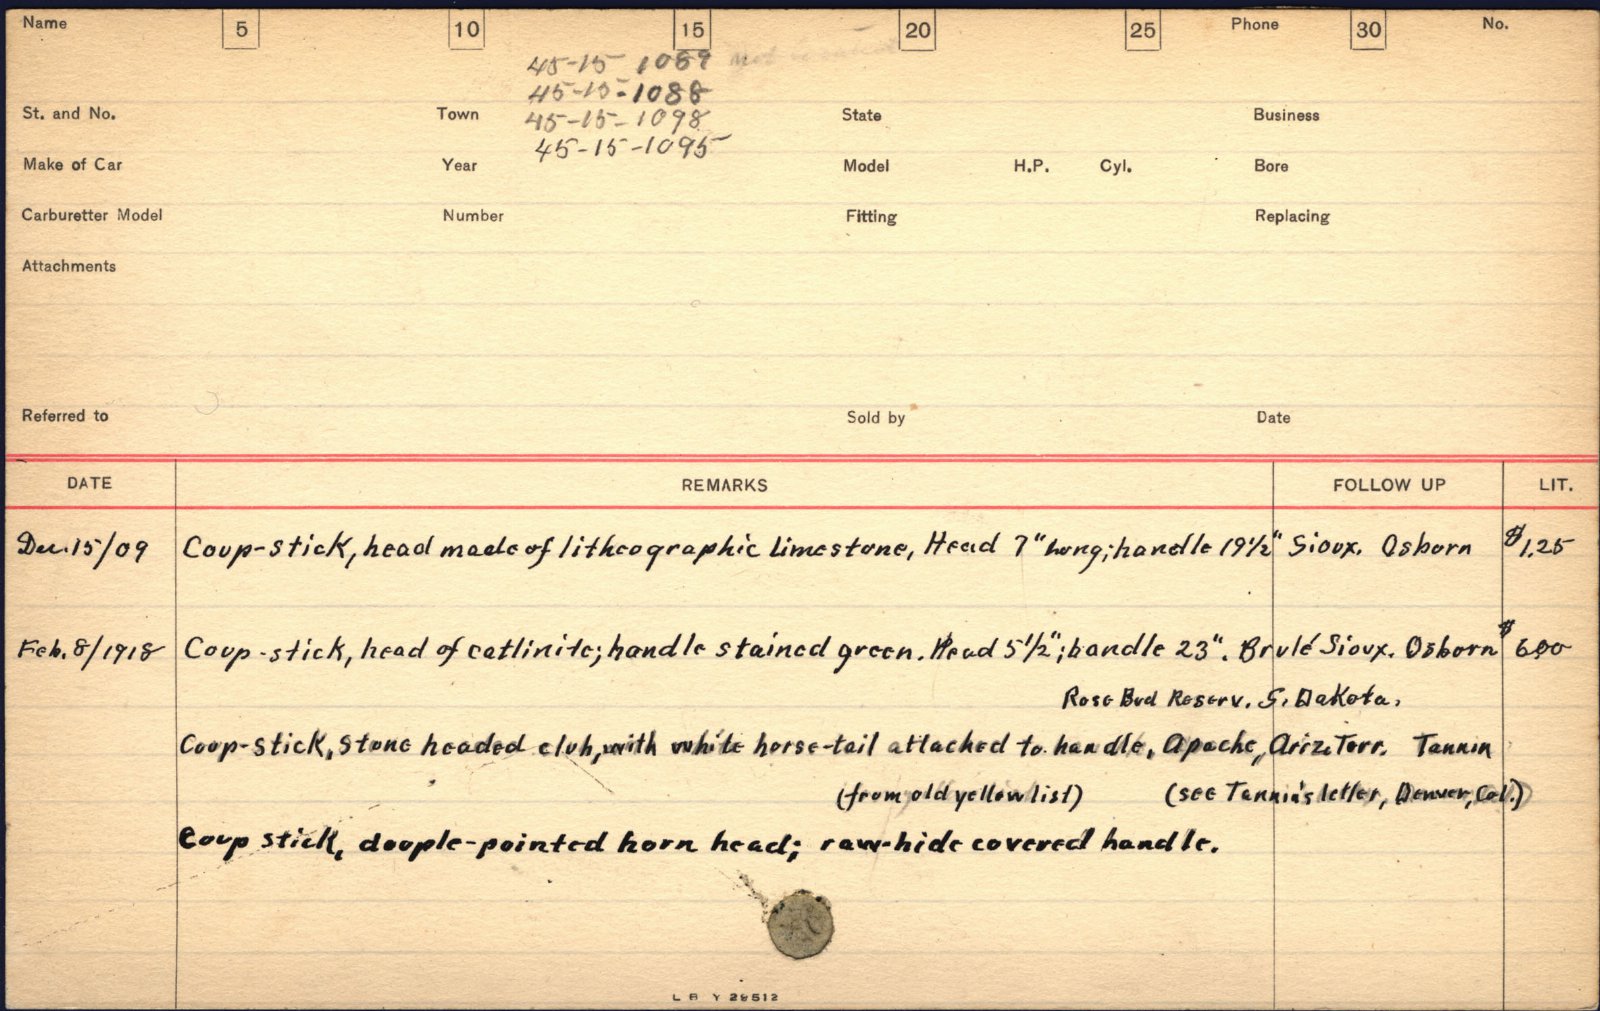 Name 5 10 15 20 25 Phone 30 No.
45-15 1089 not
45-15-1088
St. and No. Town 45-15-1098 State Business
45-15-1095
Make of Car Year Model H.P. Cyl. Bore
Carburetter Model Number Fitting Replacing
Attachments
Referred to Sold by Date
DATE REMARKS FOLLOW UP LIT.
Dec. 15/09 Coup-stick, head made of litheographic limestone, Head 7" long; handle 19½" Sioux. Osborn $1.25
Feb. 8/1918 Coup-stick, head of catlinite; handle stained green. Head 5½"; handle 23". Brulé Sioux. Osborn $600
Rose Bud Reserv. S. Dakota.
Coup-stick, stone headed club, with white horse-tail attached to handle, Apache, Ariz. Terr. Tannin
(from old yellow list) (see Tannin's letter, Denver, Col.)
Coup stick, douple-pointed horn head; raw-hide covered handle.
L B Y 29512